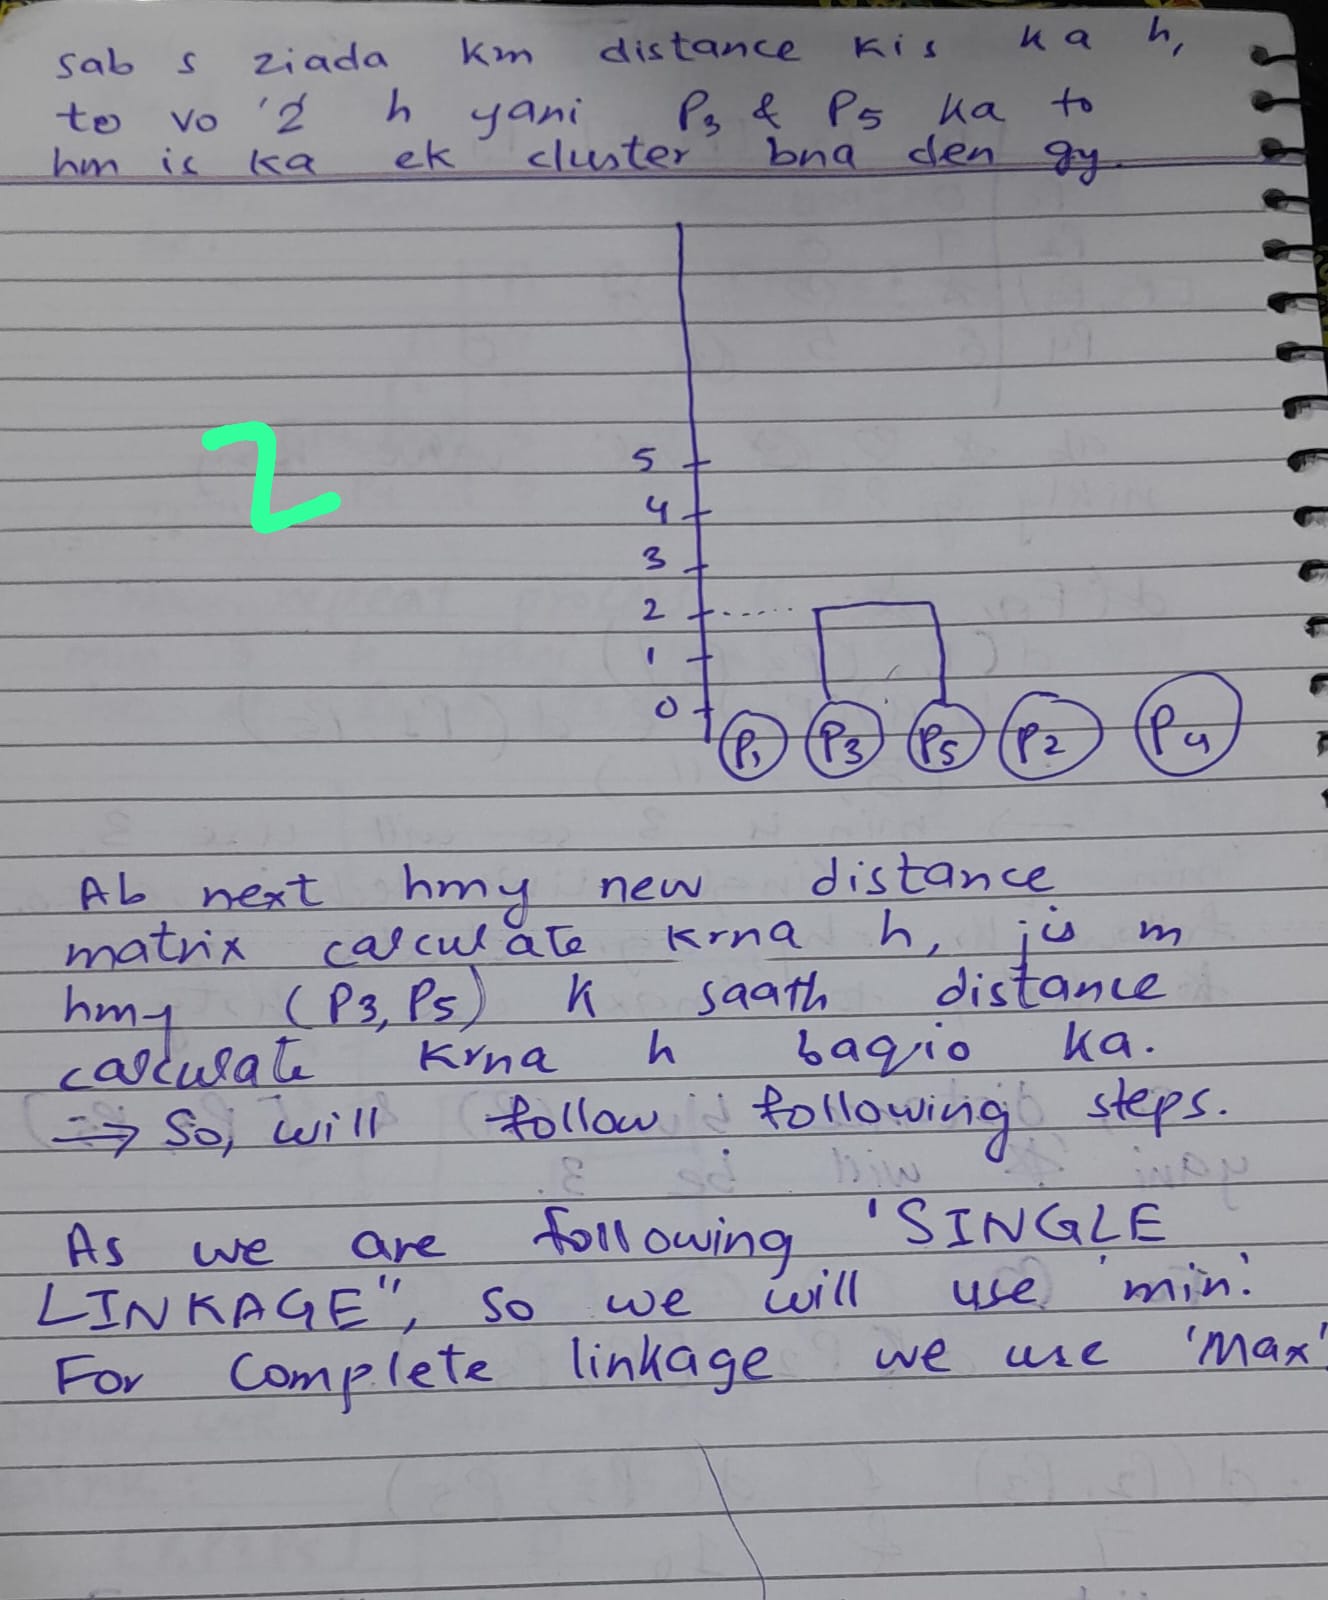 sab s ziada km distance kis ka h,
to vo '2' h yani P3 & P5 ka to
hm is ka ek cluster bna den gy.
2
5
4
3
2
1
0
P1 P3 P5 P2 P4
Ab next hmy new distance
matrix calculate krna h, jis m
hmy (P3, P5) k saath distance
calculate krna h baqio ka.
⇒ So, will follow following steps.
As we are following 'SINGLE
LINKAGE", so we will use 'min'.
For Complete linkage we use 'Max'